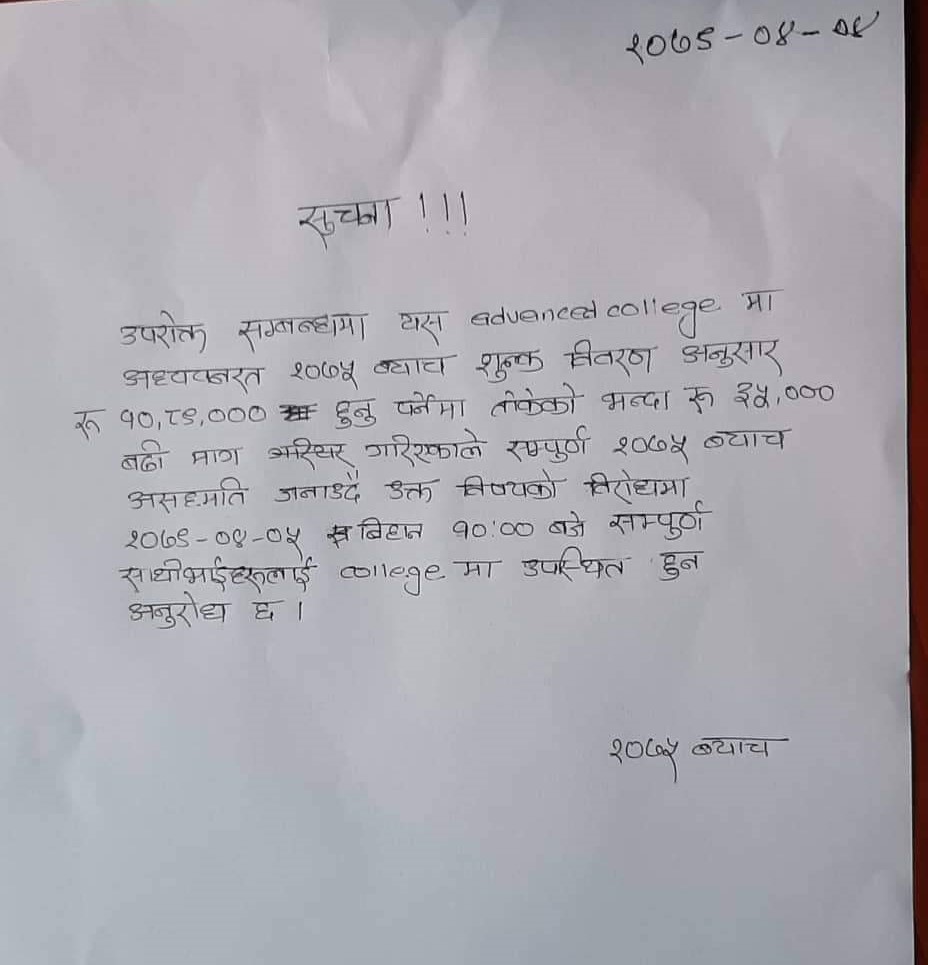 २०७९-०४-०४
सुचना !!!
उपरोक्त सम्बन्धमा यस advanced college मा
अध्ययनरत २०७५ ब्याच शुल्क विवरण अनुसार
रू १०,८९,००० हुनु पर्नेमा तोकेको भन्दा रू ३५,०००
बढी माग गरिएकाले सम्पुर्ण २०७५ ब्याच
असहमति जनाउदै उक्त विषयको विरोधमा
२०७९-०४-०५ बिहान १०:०० बजे सम्पुर्ण
साथीभाईहरूलाई college मा उपस्थित हुन
अनुरोध छ ।
२०७५ ब्याच